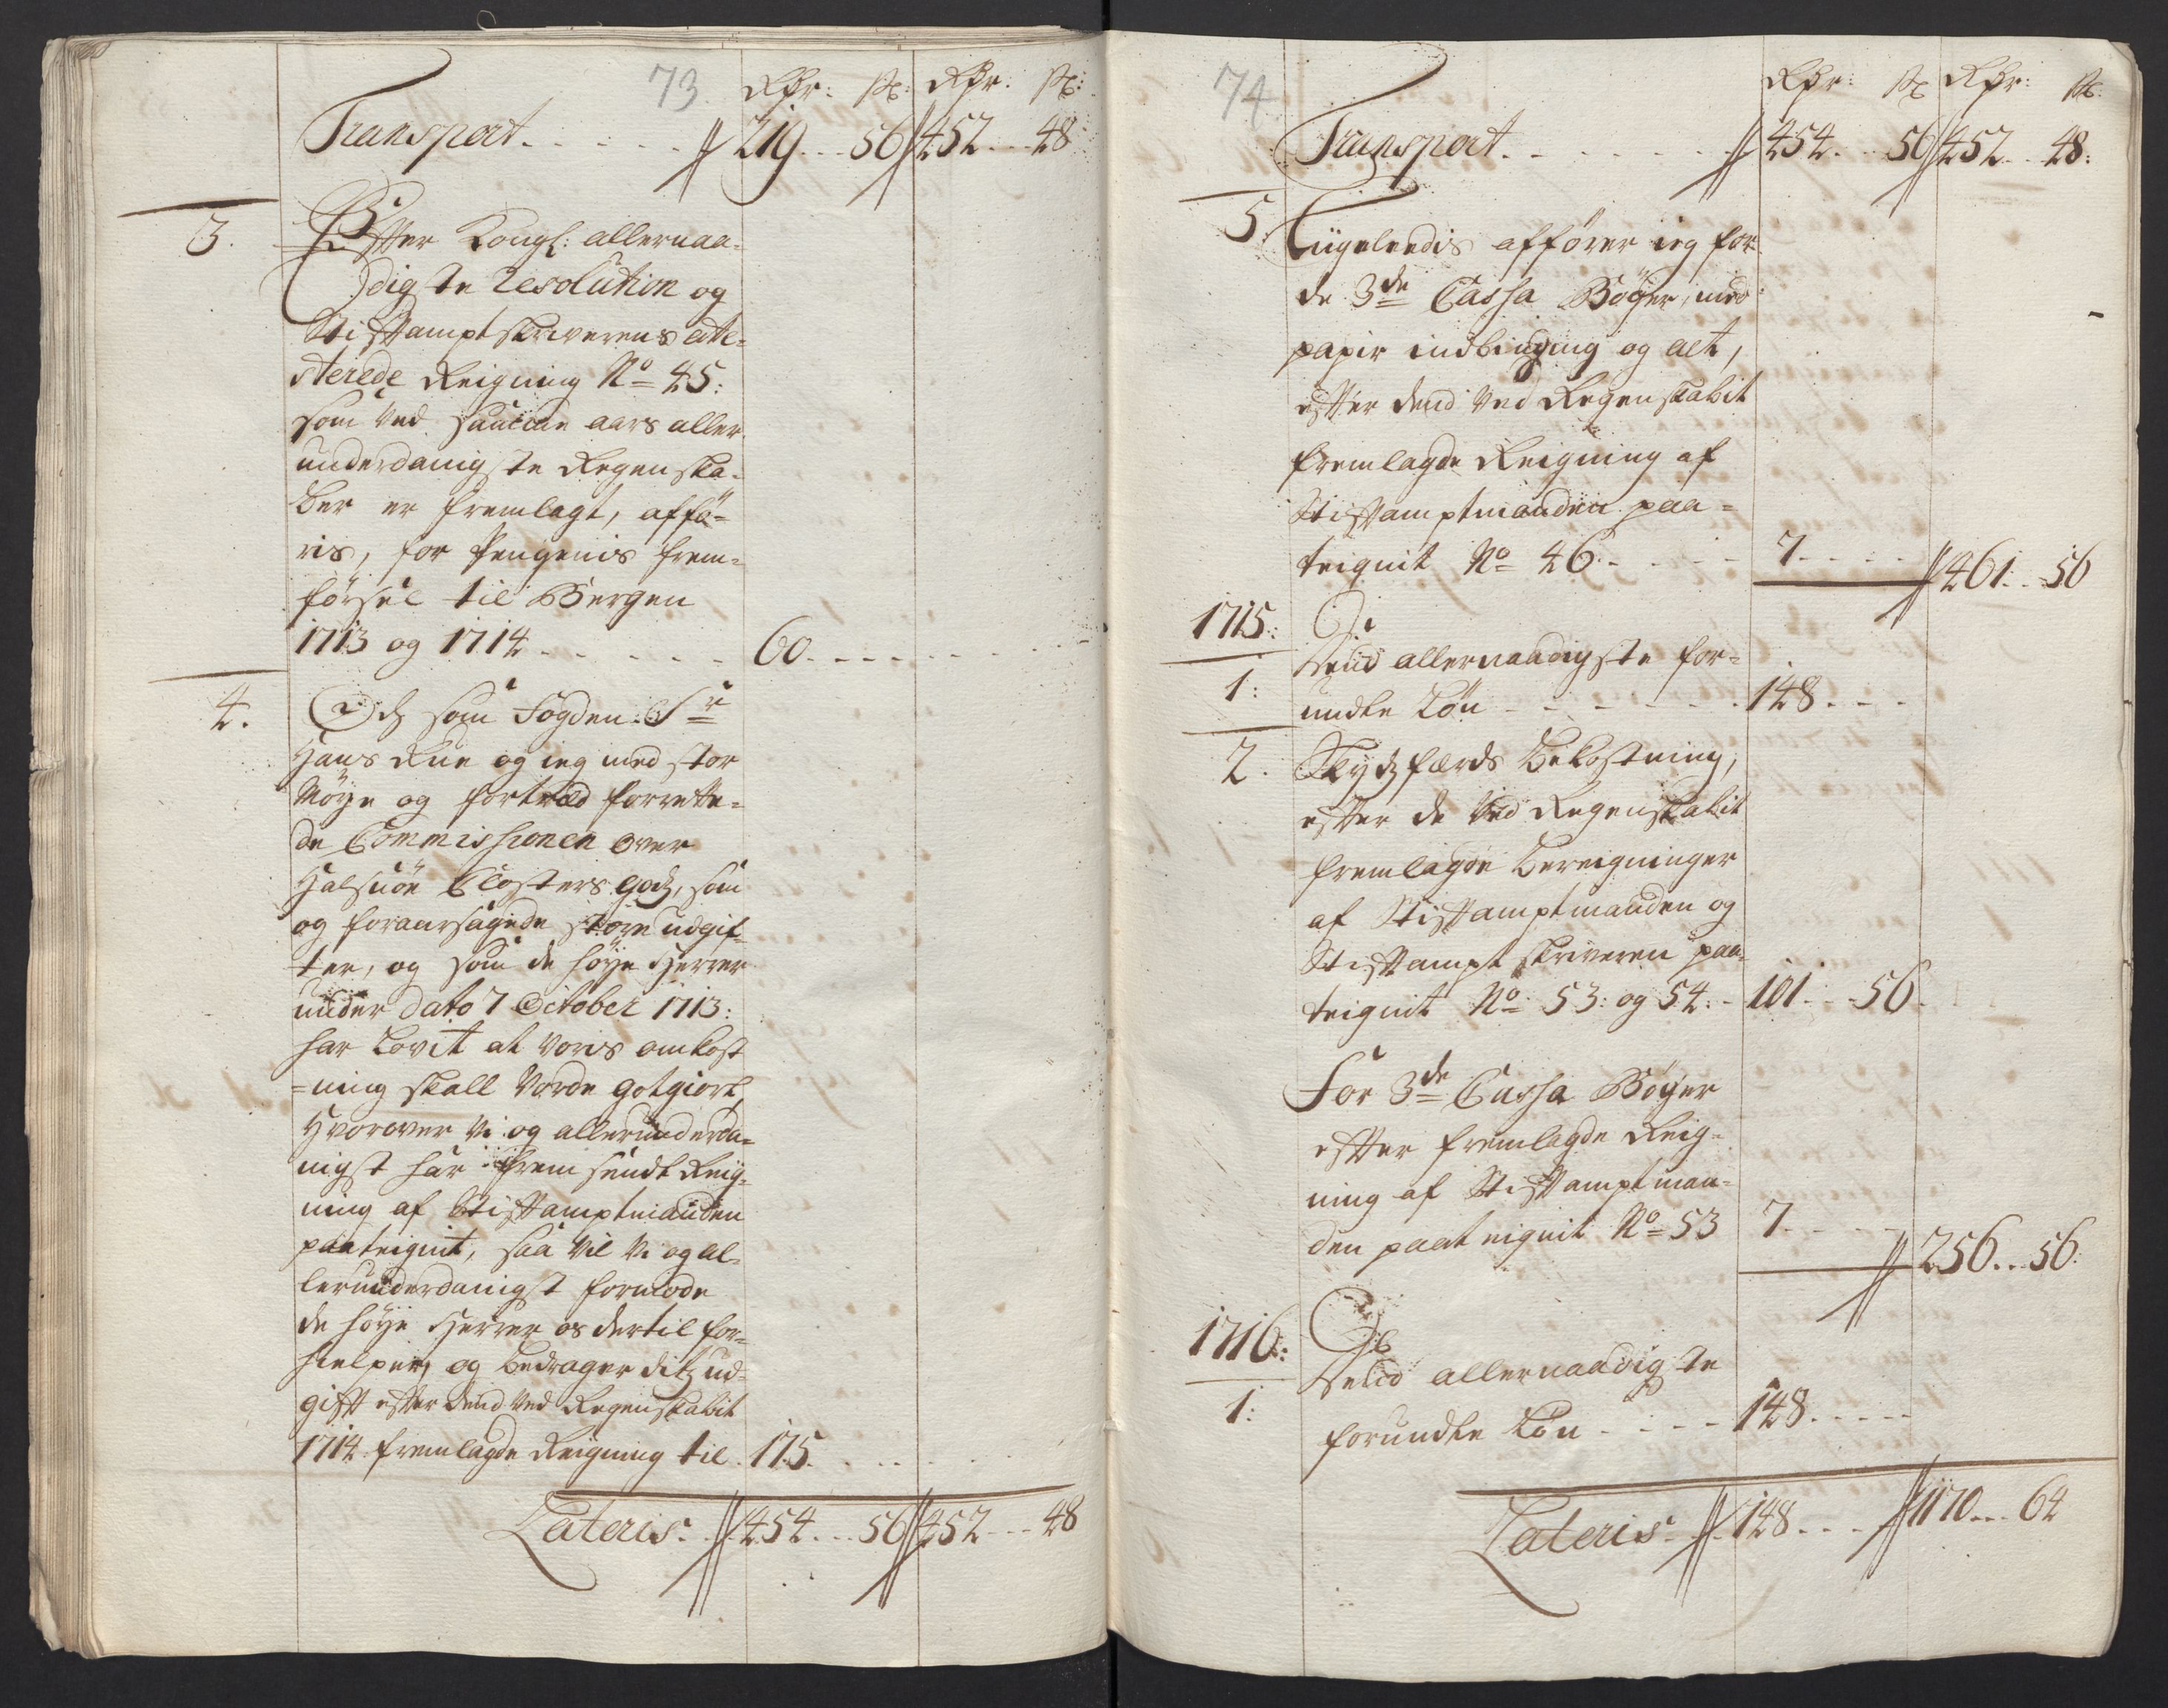 73. Rdr: ſk: Rdr: ſk:
Transport. . . . . . 219. . . 56 452. . . 48
3. Effter Kongl: allernaa-
digste Resolution og
Stifftamptskriverens atte-
sterede Reigning No 45:
som ved samme aars aller
underdanigste Regenska-
ber er fremlagt, affö-
ris, for Pengenis frem-
försel til Bergen
1713 og 1714. . . . . . 60. . . .
4. Og som Fogden Sr
Hans Rue og ieg med stor
Möye og fortræd forrette-
de Commissionen over
Halsnöe Closters godz, som
og foraarsagede store udgif-
ter, og som de höye Herrer
under dato 7 October 1713:
har Lovit at voris omkost
-ning skall Vorde gotgiort,
Hvorover Vi og allerunderda-
nigst har frem sendt Reig-
ning af Stifftamptmanden
paateignit, saa Vil Vi og al-
lerunderdanigst formode
de höye Herrer os dertil for-
hielper, og bedrager ditz ud-
gifft effter dend ved Regenskabit
1714 fremlagde Reigning til. 175. . .
Lateris. . 454. . . 56 452. . . 48
74 Rdr: ſk Rdr: ſk.
Transport. . . . . . 454. . . 56 452. . 48:
5 Liigeledis afförer ieg for
de 3de Cassa Böger, med
papir indbinding og alt,
effter dend ved Regenskabit
fremlagde Reigning af
Stifftamptmanden paa-
teignit No 46. . . . . 7. . . . 461. . 56
1715: Di
1: send allernaadigste for-
undte Lön . . . . . . 148. . .
2. Skydsfærds Bekostning,
effter de ved Regenskabit
fremlagde Bereigninger
af Stifftamptmanden og
Stifftampt skriveren paa-
teignit No 53: og 54: - 101. . . 56.
For 3de Cassa Böger
effter fremlagde Reig-
ning af Stifftamptman-
den paateignit No 53 7. . . . 256. . . 56:
1716:
1: send allernaadigste
forundte Lön . . . . 148. . . .
Lateris. . 148. . . . 1170. . . 64